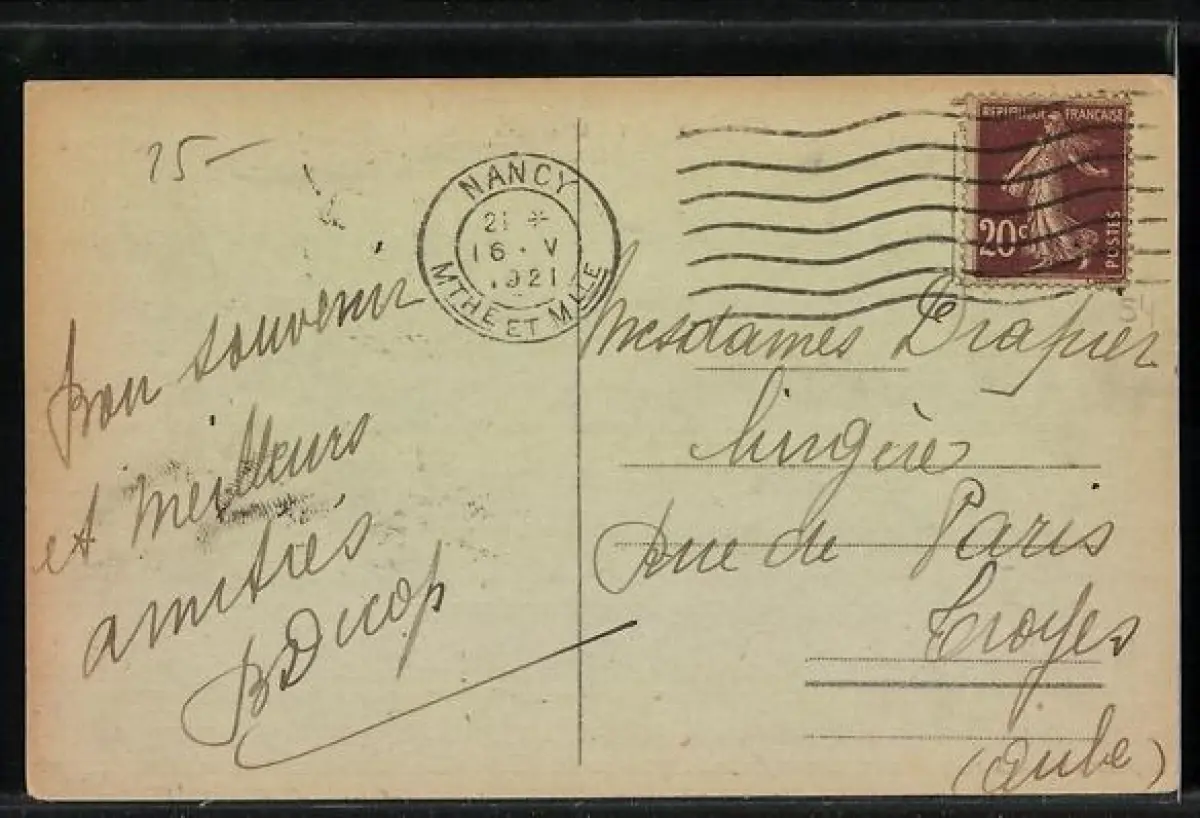 15-
Bon souvenir
et meilleurs
amitiés
NANCY
21 *
16 · V
1921
MTHE ET MLLE
REPUBLIQUE FRANÇAISE
20c
POSTES
Mesdames Drapier
lingère
Rue de Paris
Troyes
(Aube)